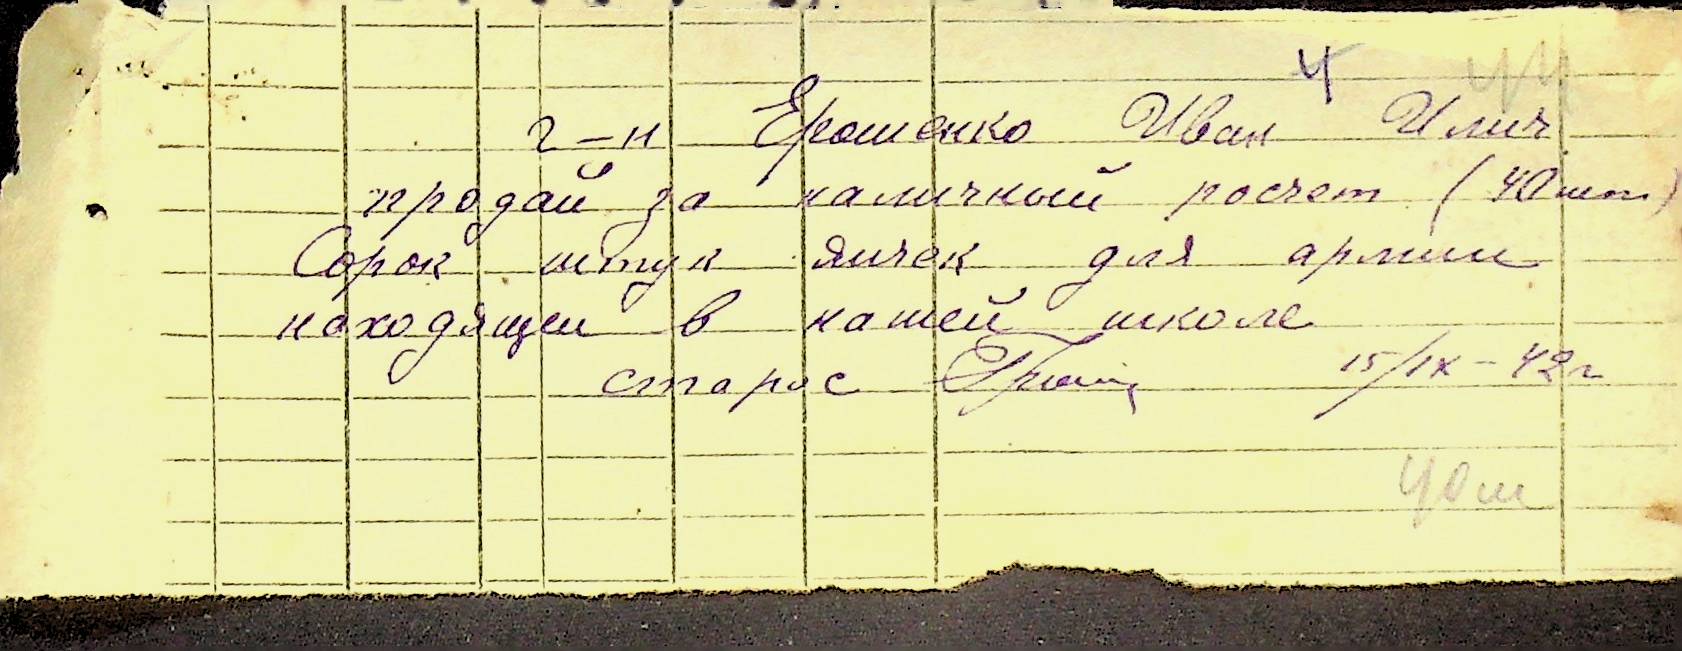 4 44
г-н Ерошенко Иван Илич
продай за наличный росчет (40 шт)
Сорок штук яичек для армии
находящеи в нашей школе
старос 15/IX-42 г
40 ш